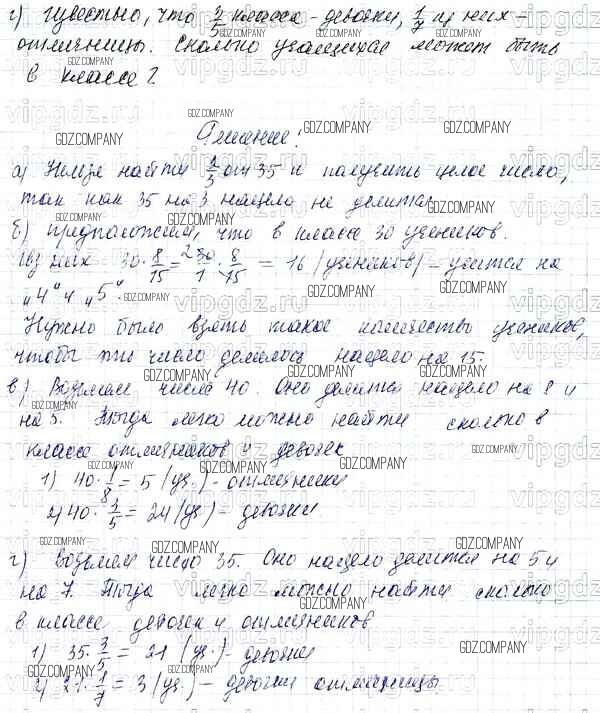 г) Известно, что 3/5 класса - девочки, 1/7 из них -
отличницы. Сколько учащихся может быть
в классе?
Решение:
а) Нельзя найти 1/3 от 35 и получить целое число,
так как 35 на 3 нацело не делится.
б) Предположим, что в классе 30 учеников.
Из них 30 · 8/15 = 30/1 · 8/15 = 16 (учеников) - учится на
"4" и "5".
Нужно было взять такое количество учеников,
чтобы это число делилось нацело на 15.
в) Возьмем число 40. Оно делится нацело на 8 и
на 5. Тогда легко можно найти сколько в
классе отличников и девочек
1) 40 · 1/8 = 5 (уч.) - отличники
2) 40 · 3/5 = 24 (уч.) - девочки
г) Возьмем число 35. Оно нацело делится на 5 и
на 7. Тогда легко можно найти сколько
в классе девочек и отличников
1) 35 · 3/5 = 21 (уч.) - девочки
2) 21 · 1/7 = 3 (уч.) - девочки отличницы.